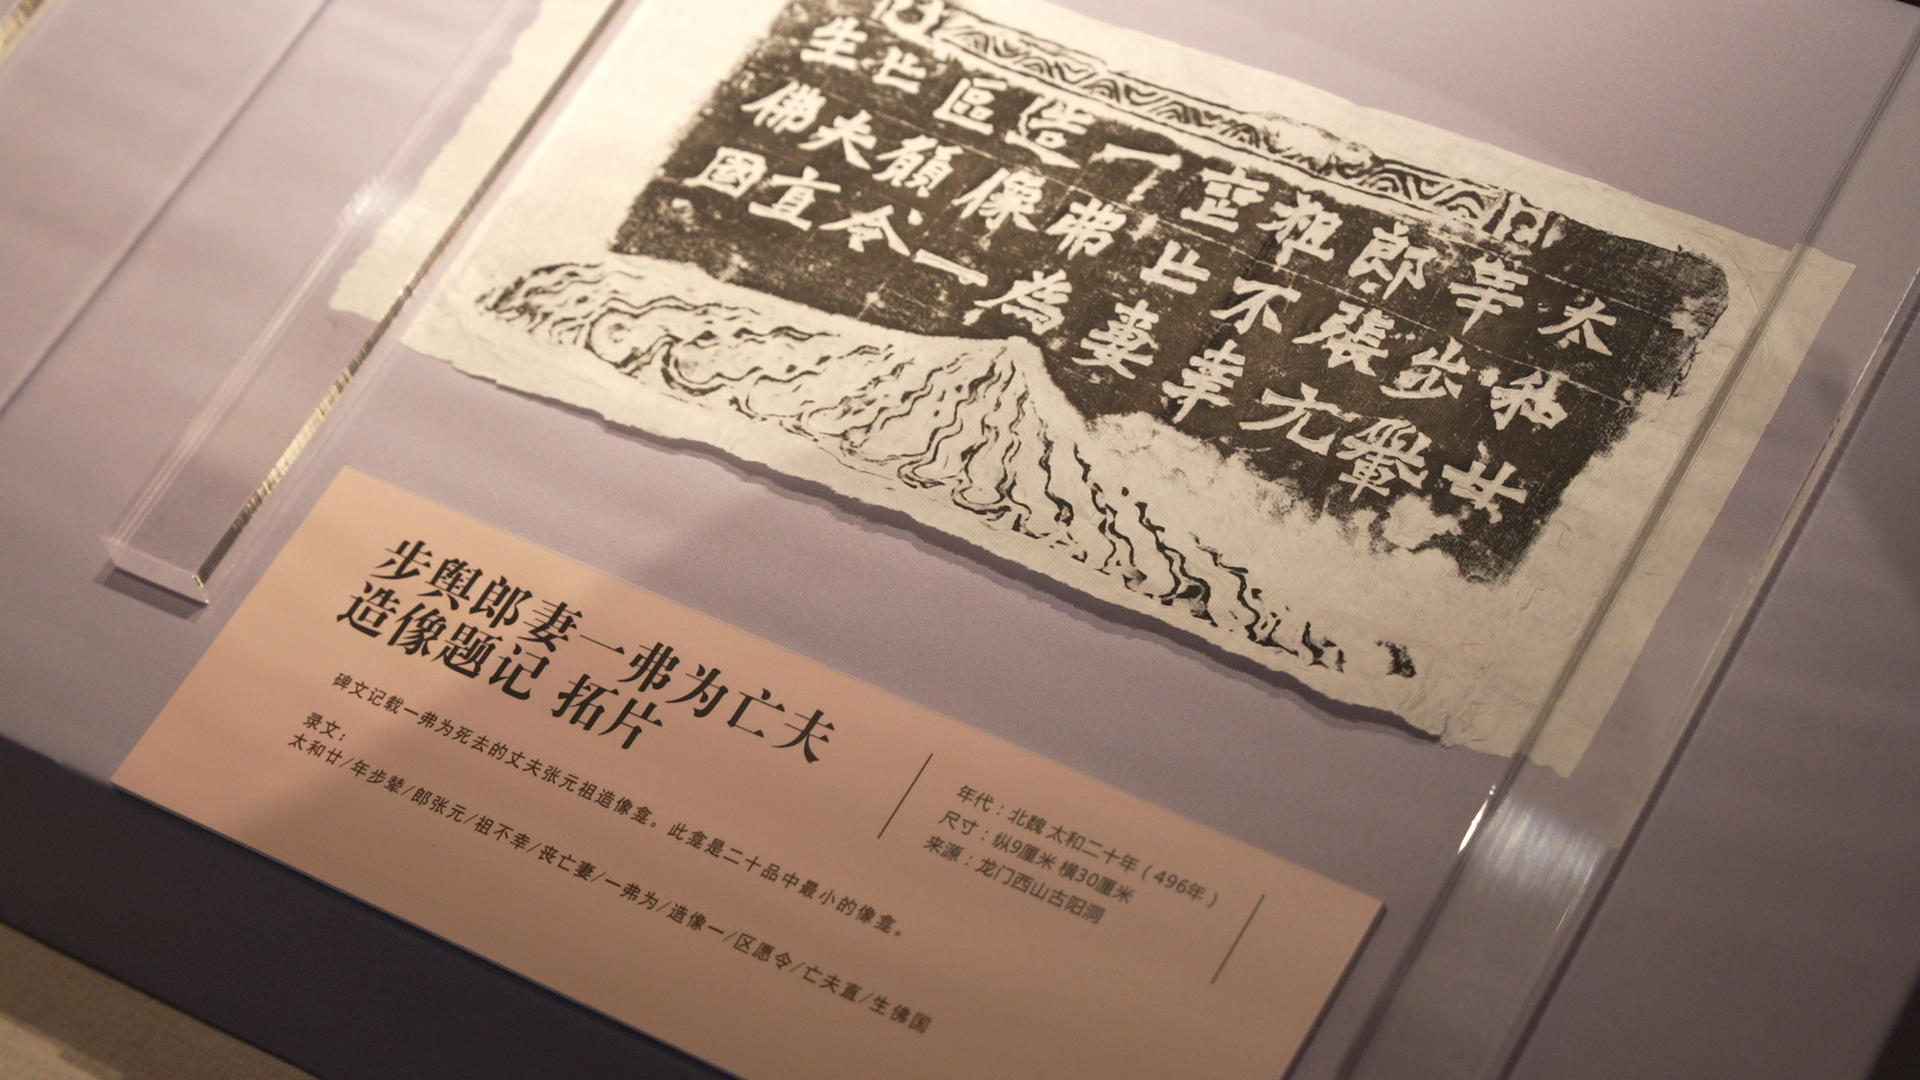 太和廿
年步轝
郎張元
祖不幸
喪亡妻
一弗為
造像一
區願令
亡夫直
生佛國
步舆郎妻一弗为亡夫
造像题记 拓片
碑文记载一弗为死去的丈夫张元祖造像龛。此龛是二十品中最小的像龛。
录文：
太和廿/年步轝/郎张元/祖不幸/丧亡妻/一弗为/造像一/区愿令/亡夫直/生佛国
年代：北魏 太和二十年（496年）
尺寸：纵9厘米 横30厘米
来源：龙门西山古阳洞